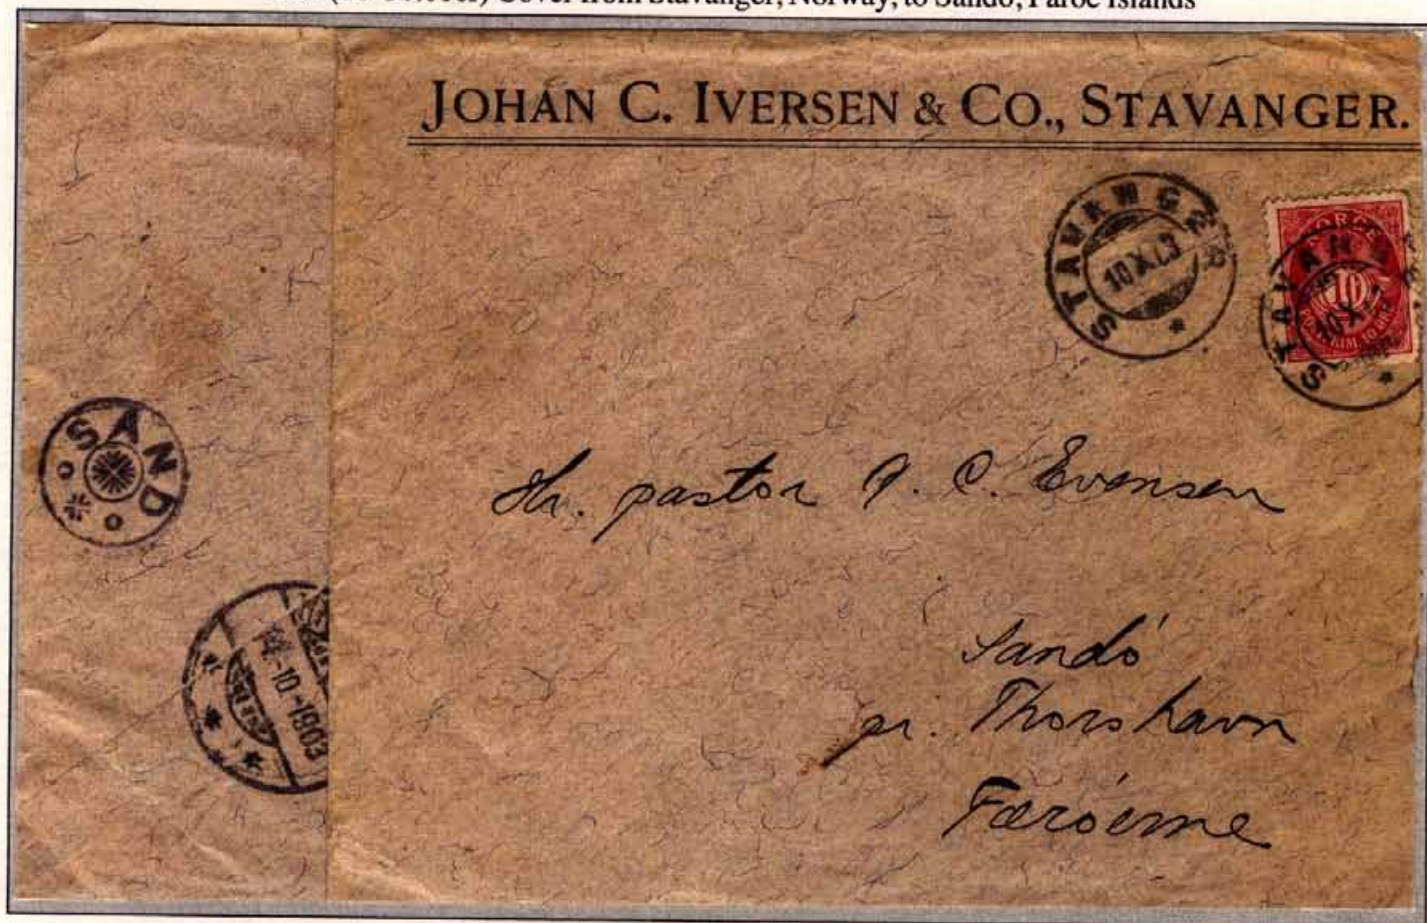 Cover from Stavanger, Norway, to Sandö, Faroe Islands
JOHAN C. IVERSEN & CO., STAVANGER.
STAVANGER
10 X 03
NORGE
10
STAVANGER
10 X
SAND
-10-1903
Hr. pastor A. C. Evensen
Sandó
pr. Thorshavn
Færóerne